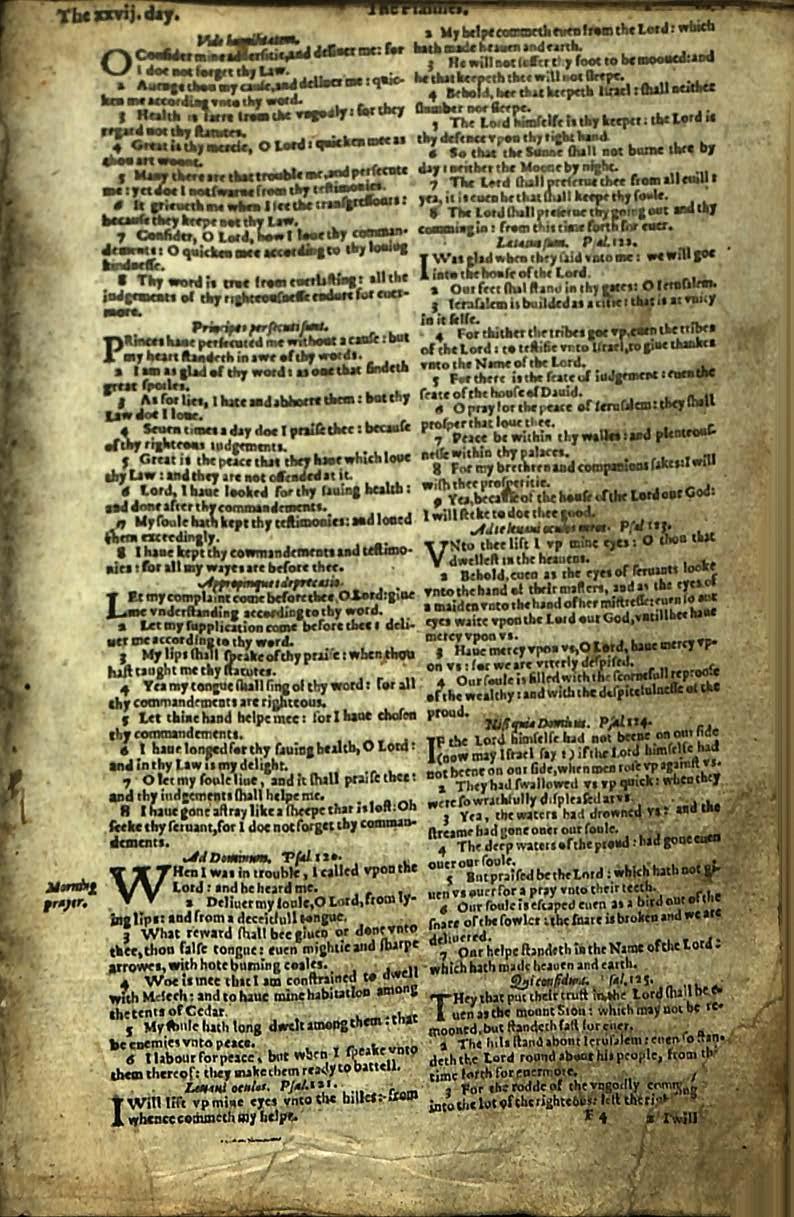 The xxvij. day.
The Psalmes.
Vide humilitatem.
O Consider mine adversitie, and deliuer me: for
I doe not forget thy Law.
2 Auenge thou my cause, and deliuer me: quic-
ken me according vnto thy word.
3 Health is farre from the vngodly: for they
regard not thy statutes.
4 Great is thy mercie, O Lord: quicken mee as
thou art woont.
5 Many there are that trouble me, and persecute
me: yet doe I not swarue from thy testimonies.
6 It grieueth me when I see the transgressours:
because they keepe not thy Law.
7 Consider, O Lord, how I loue thy comman-
dements: O quicken mee according to thy louing
kindnesse.
8 Thy word is true from euerlasting: all the
iudgements of thy righteousnesse endure for euer-
more.
Principes persecuti sunt.
PRinces haue persecuted me without a cause: but
my heart standeth in awe of thy words.
2 I am as glad of thy word: as one that findeth
great spoiles.
3 As for lies, I hate and abhorre them: but thy
Law doe I loue.
4 Seuen times a day doe I praise thee: because
of thy righteous iudgements.
5 Great is the peace that they haue which loue
thy Law: and they are not offended at it.
6 Lord, I haue looked for thy sauing health:
and done after thy commandements.
7 My soule hath kept thy testimonies: and loued
them exceedingly.
8 I haue kept thy commandements and testimo-
nies: for all my wayes are before thee.
Appropinquet deprecatio.
LEt my complaint come before thee, O Lord: giue
me vnderstanding according to thy word.
2 Let my supplication come before thee: deli-
uer me according to thy word.
3 My lips shall speake of thy praise: when thou
hast taught me thy statutes.
4 Yea my tongue shall sing of thy word: For all
thy commandements are righteous.
5 Let thine hand helpe mee: for I haue chosen
thy commandements.
6 I haue longed for thy sauing health, O Lord:
and in thy Law is my delight.
7 O let my soule liue, and it shall praise thee:
and thy iudgements shall helpe me.
8 I haue gone astray like a sheepe that is lost: Oh
seeke thy seruant, for I doe not forget thy comman-
dements.
Ad Dominum. Psal. 120.
Morning
prayer.
WHen I was in trouble, I called vpon the
Lord: and he heard me.
2 Deliuer my soule, O Lord, from ly-
ing lips: and from a deceitfull tongue.
3 What reward shall bee giuen or done vnto
thee, thou false tongue: euen mightie and sharpe
arrowes, with hote burning coales.
4 Woe is mee that I am constrained to dwell
with Mesech: and to haue mine habitation among
the tents of Cedar.
5 My soule hath long dwelt among them: that
be enemies vnto peace.
6 I labour for peace, but when I speake vnto
them thereof: they make them ready to battell.
Leuaui oculos. Psal. 121.
I Will lift vp mine eyes vnto the hilles: from
whence commeth my helpe.
2 My helpe commeth euen from the Lord: which
hath made heauen and earth.
3 He will not suffer thy foot to be mooued: and
he that keepeth thee will not sleepe.
4 Behold, hee that keepeth Israel: shall neither
slumber nor sleepe.
5 The Lord himselfe is thy keeper: the Lord is
thy defence vpon thy right hand.
6 So that the Sunne shall not burne thee by
day: neither the Moone by night.
7 The Lord shall preserue thee from all euill:
yea, it is euen he that shall keepe thy soule.
8 The Lord shall preserue thy going out and thy
comming in: from this time forth for euer.
Lætatus sum. Psal. 122.
I Was glad when they said vnto me: we will goe
into the house of the Lord.
2 Our feet shal stand in thy gates: O Ierusalem.
3 Ierusalem is builded as a citie: that is at vnity
in it selfe.
4 For thither the tribes goe vp, euen the tribes
of the Lord: to testifie vnto Israel, to giue thankes
vnto the Name of the Lord.
5 For there is the seate of iudgement: euen the
seate of the house of Dauid.
6 O pray for the peace of Ierusalem: they shall
prosper that loue thee.
7 Peace be within thy walles: and plenteous-
nesse within thy palaces.
8 For my brethren and companions sakes: I will
wish thee prosperitie.
9 Yea, because of the house of the Lord our God:
I will seeke to doe thee good.
Ad te leuaui oculos meos. Psal. 123.
VNto thee lift I vp mine eyes: O thou that
dwellest in the heauens.
2 Behold, euen as the eyes of seruants looke
vnto the hand of their masters, and as the eyes of
a maiden vnto the hand of her mistresse: euen so our
eyes waite vpon the Lord our God, vntill hee haue
mercy vpon vs.
3 Haue mercy vpon vs, O Lord, haue mercy vp-
on vs: for we are vtterly despised.
4 Our soule is filled with the scornefull reproofe
of the wealthy: and with the despitefulnesse of the
proud.
Nisi quia Dominus. Psal. 124.
IF the Lord himselfe had not beene on our side
(now may Israel say:) if the Lord himselfe had
not beene on our side, when men rose vp against vs.
2 They had swallowed vs vp quick: when they
were so wrathfully displeased at vs.
3 Yea, the waters had drowned vs: and the
streame had gone ouer our soule.
4 The deep waters of the proud: had gone euen
ouer our soule.
5 But praised be the Lord: which hath not gi-
uen vs ouer for a pray vnto their teeth.
6 Our soule is escaped euen as a bird out of the
snare of the fowler: the snare is broken and we are
deliuered.
7 Our helpe standeth in the Name of the Lord:
which hath made heauen and earth.
Qui confidunt. Psal. 125.
THey that put their trust in the Lord shall be e-
uen as the mount Sion: which may not be re-
mooued, but standeth fast for euer.
2 The hils stand about Ierusalem: euen so stan-
deth the Lord round about his people, from this
time forth for euermore.
3 For the rodde of the vngodly commeth
into the lot of the righteous: lest the
F 4
2 I will